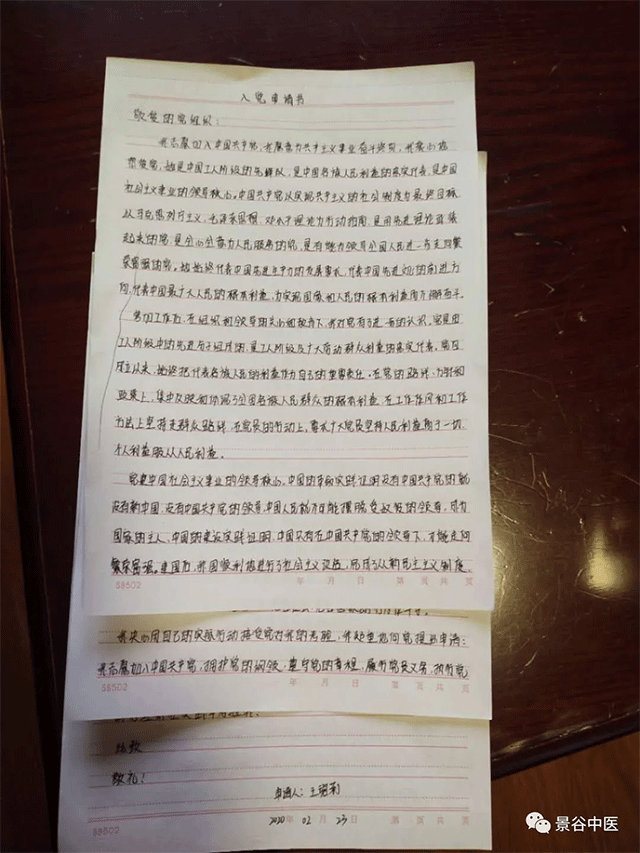 入党申请书
敬爱的党组织：
我志愿加入中国共产党，我愿意为共产主义事业奋斗终身，我衷心地
热爱党，她是中国工人阶级的先锋队，是中国各族人民利益的忠实代表，是中国
社会主义事业的领导核心。中国共产党以实现共产主义的社会制度为最终目标
以马克思列宁主义、毛泽东思想、邓小平理论为行动指南，是用先进理论武装
起来的党，是全心全意为人民服务的党，是有能力领导全国人民进一步走向繁
荣富强的党。她始终代表中国先进生产力的发展要求，代表中国先进文化的前进方
向，代表中国最广大人民的根本利益，
参加工作后，在组织和领导的关心和教导下，我对党有了进一步的认识。党是由
工人阶级中的先进分子组成的，是工人阶级及广大劳动群众利益的忠实代表。党自
成立以来，她始终把代表各族人民的利益作为自己的重要责任。在党的路线、方针和
政策上，集中反映和体现了全国各族人民群众的根本利益。在工作作风和工作
方法上坚持走群众路线，在党员的行动上，要求广大党员坚持人民利益高于一切，
个人利益服从人民利益。
党是中国社会主义事业的领导核心。中国的革命实践证明没有中国共产党的就
没有新中国，没有中国共产党的领导，中国人民就不可能摆脱受奴役的
国家的主人。中国的建设实践证明，中国只有在中国共产党的领导下，才能走向
繁荣富强。建国后，我国顺利地进行了社会主义改造，完成了从新民主主义制度
S8502 年 月 日 第 页 共 页
我决心用自己的实际行动接受党对我的考验，我郑重地向党提出申请：
我志愿加入中国共产党，拥护党的纲领，遵守党的章程，履行党员义务，执行党
S8502 年 月 日 第 页 共 页
此致
敬礼！
申请人：
S8502 2020年 02月 23日 第 页 共 页
景谷中医